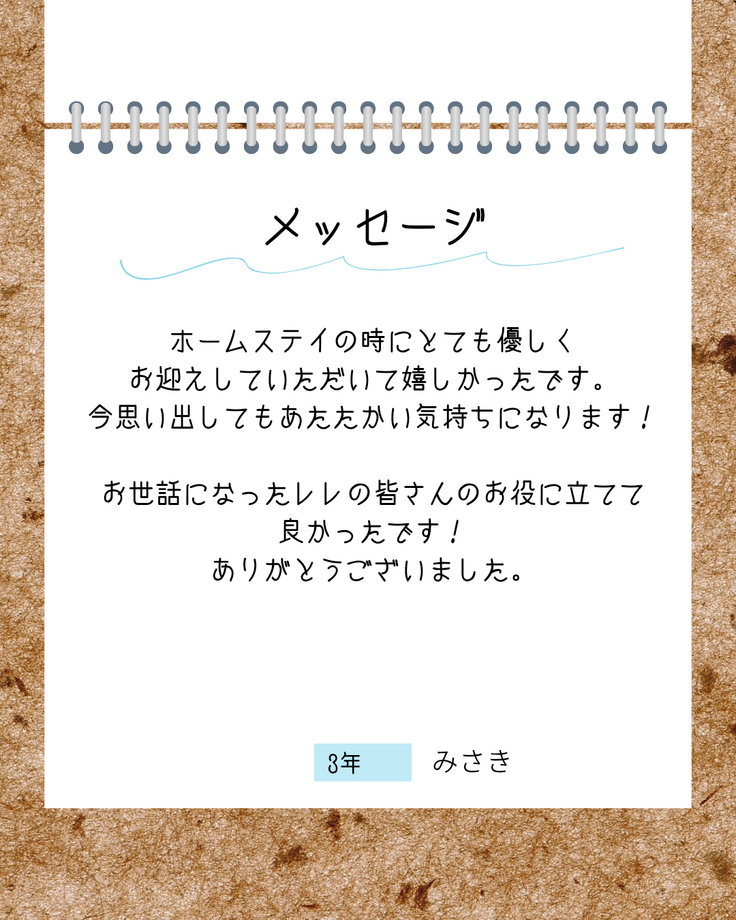 メッセージ
ホームステイの時にとても優しく
お迎えしていただいて嬉しかったです。
今思い出してもあたたかい気持ちになります！
お世話になったレレの皆さんのお役に立てて
良かったです！
ありがとうございました。
3年 みさき